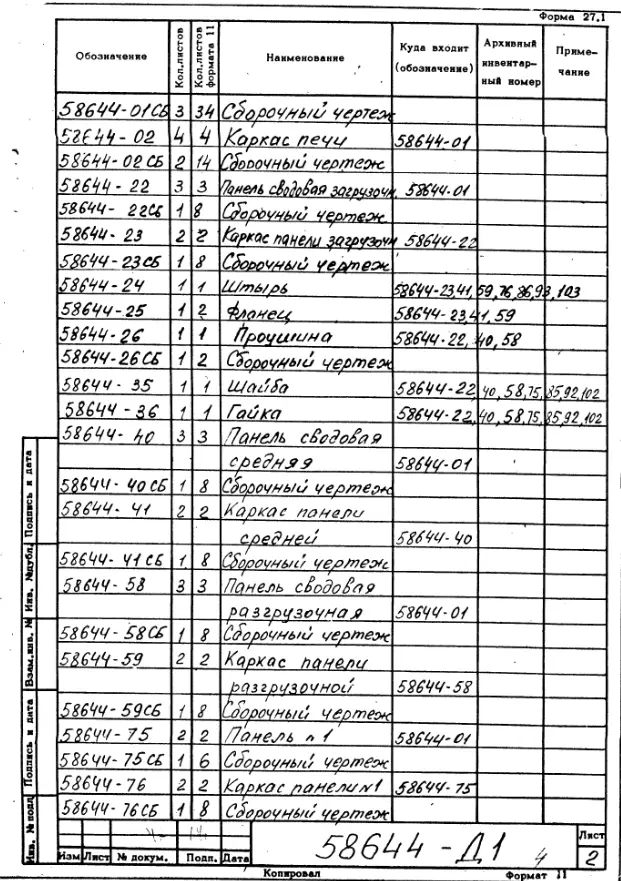 Форма 27.1
Обозначение Кол.листов Кол.листов формата 11 Наименование Куда входит (обозначение) Архивный инвентарный номер Примечание
58644-01СБ 3 34 Сборочный чертеж
58644-02 4 4 Каркас печи 58644-01
58644-02 СБ 2 14 Сборочный чертеж
58644-22 3 3 Панель сводовая загрузочн. 58644-01
58644-22СБ 1 8 Сборочный чертеж
58644-23 2 2 Каркас панели загрузочн 58644-22
58644-23СБ 1 8 Сборочный чертеж
58644-24 1 1 Штырь 58644-23,41,59,76,86,93,103
58644-25 1 2 Фланец 58644-23,41,59
58644-26 1 1 Проушина 58644-22,40,58
58644-26СБ 1 2 Сборочный чертеж
58644-35 1 1 Шайба 58644-22,40,58,75,85,92,102
58644-36 1 1 Гайка 58644-22,40,58,75,85,92,102
58644-40 3 3 Панель сводовая
средняя 58644-01
58644-40СБ 1 8 Сборочный чертеж
58644-41 2 2 Каркас панели
средней 58644-40
58644-41СБ 1 8 Сборочный чертеж
58644-58 3 3 Панель сводовая
разгрузочная 58644-01
58644-58СБ 1 8 Сборочный чертеж
58644-59 2 2 Каркас панели
разгрузочной 58644-58
58644-59СБ 1 8 Сборочный чертеж
58644-75 2 2 Панель n1 58644-01
58644-75СБ 1 6 Сборочный чертеж
58644-76 2 2 Каркас панели №1 58644-75
58644-76СБ 1 8 Сборочный чертеж
Подпись и дата
Инв. №дубл.
Взам.инв. №
Подпись и дата
Инв. № подл
Изм Лист № докум. Подп. Дата
58644-Д1 4
Лист
2
Копировал Формат 11